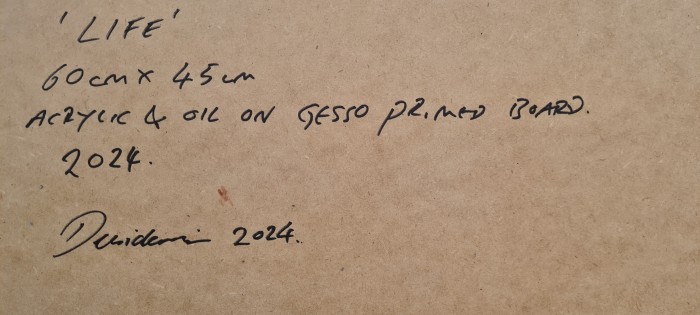 'LIFE'
60cm x 45cm
ACRYLIC & OIL ON GESSO PRIMED BOARD.
2024.
2024.